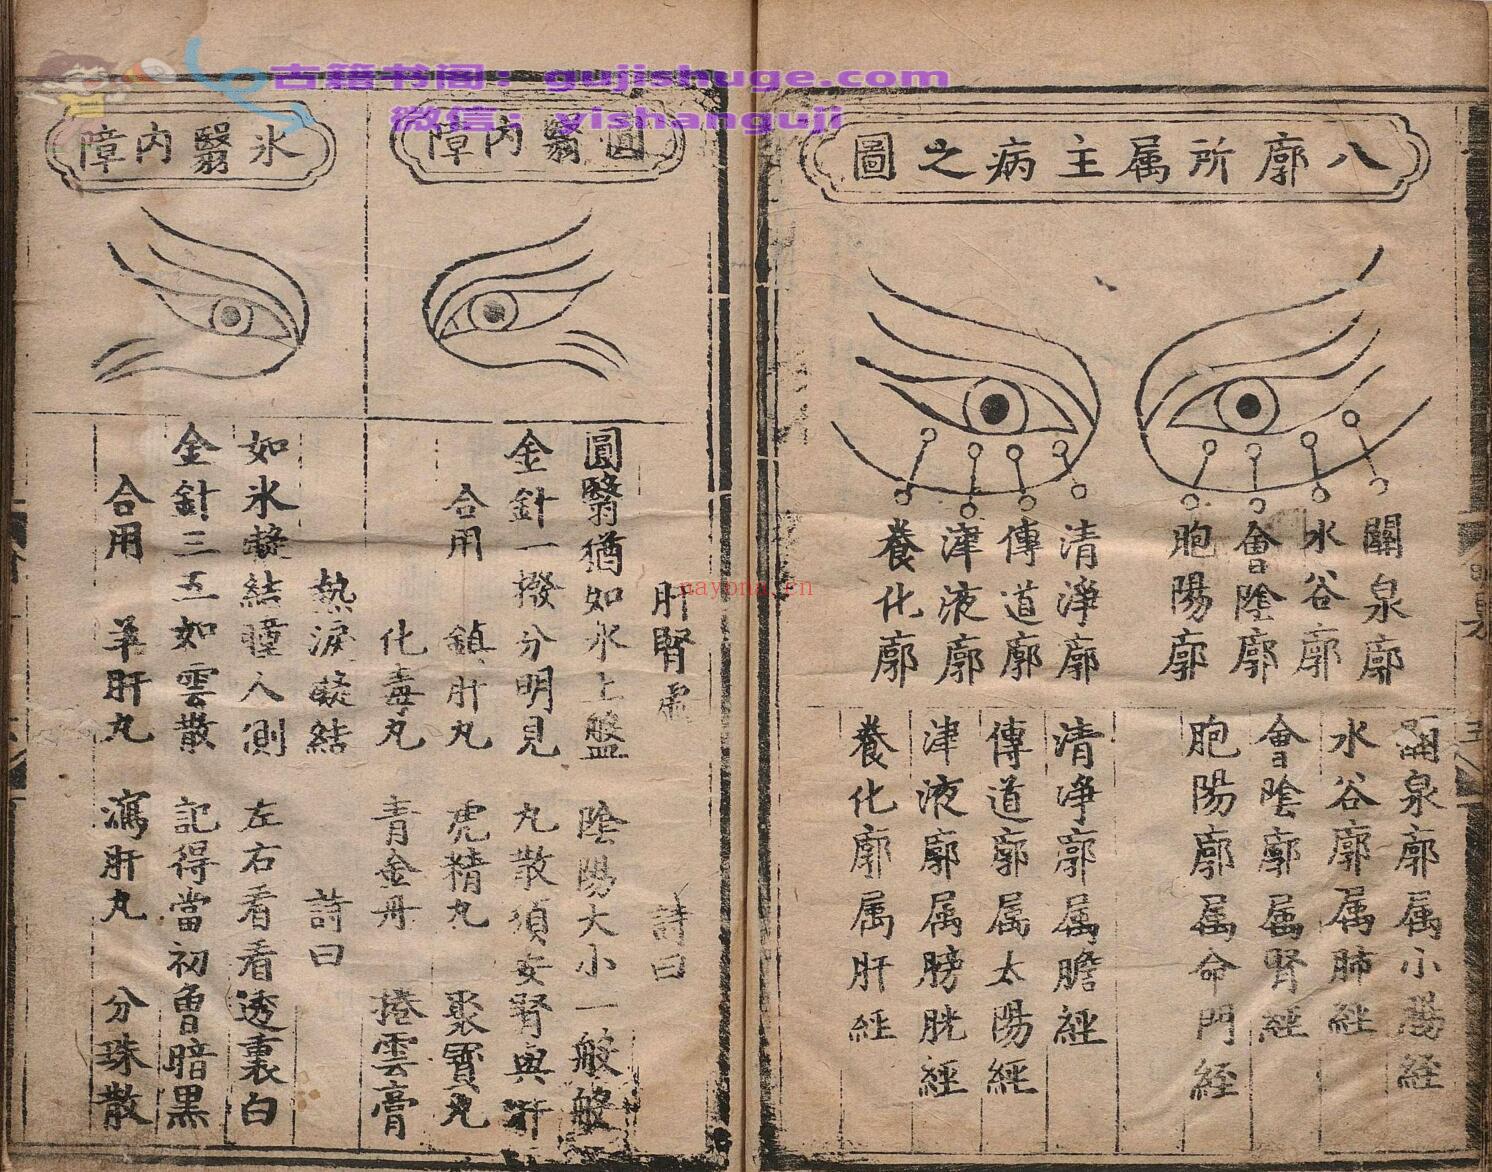 古籍书阁：gujishuge.com
微信：yishanguji
nayona.cn
八廓所属主病之圖
關泉廓
水谷廓
會陰廓
胞陽廓
清淨廓
傳道廓
津液廓
養化廓
關泉廓属小腸経
水谷廓属肺經
會陰廓属腎經
胞陽廓属命門經
清净廓属膽經
傳道廓属太陽經
津液廓属膀胱經
養化廓属肝經
圓翳内障
肝腎虚 詩曰
圓翳猶如水上盤 陰陽大小一般般
金針一撥分明見 丸散須安腎與肝
合用 鎮肝丸 虎精丸 聚寳丸
化毒丸 青金丹 捲雲膏
氷翳内障
熱淚凝結 詩曰
如氷凝結瞳人側 左右看看透裏白
金針三五如雲散 記得當初曾暗黒
合用 羊肝丸 瀉肝丸 分珠散